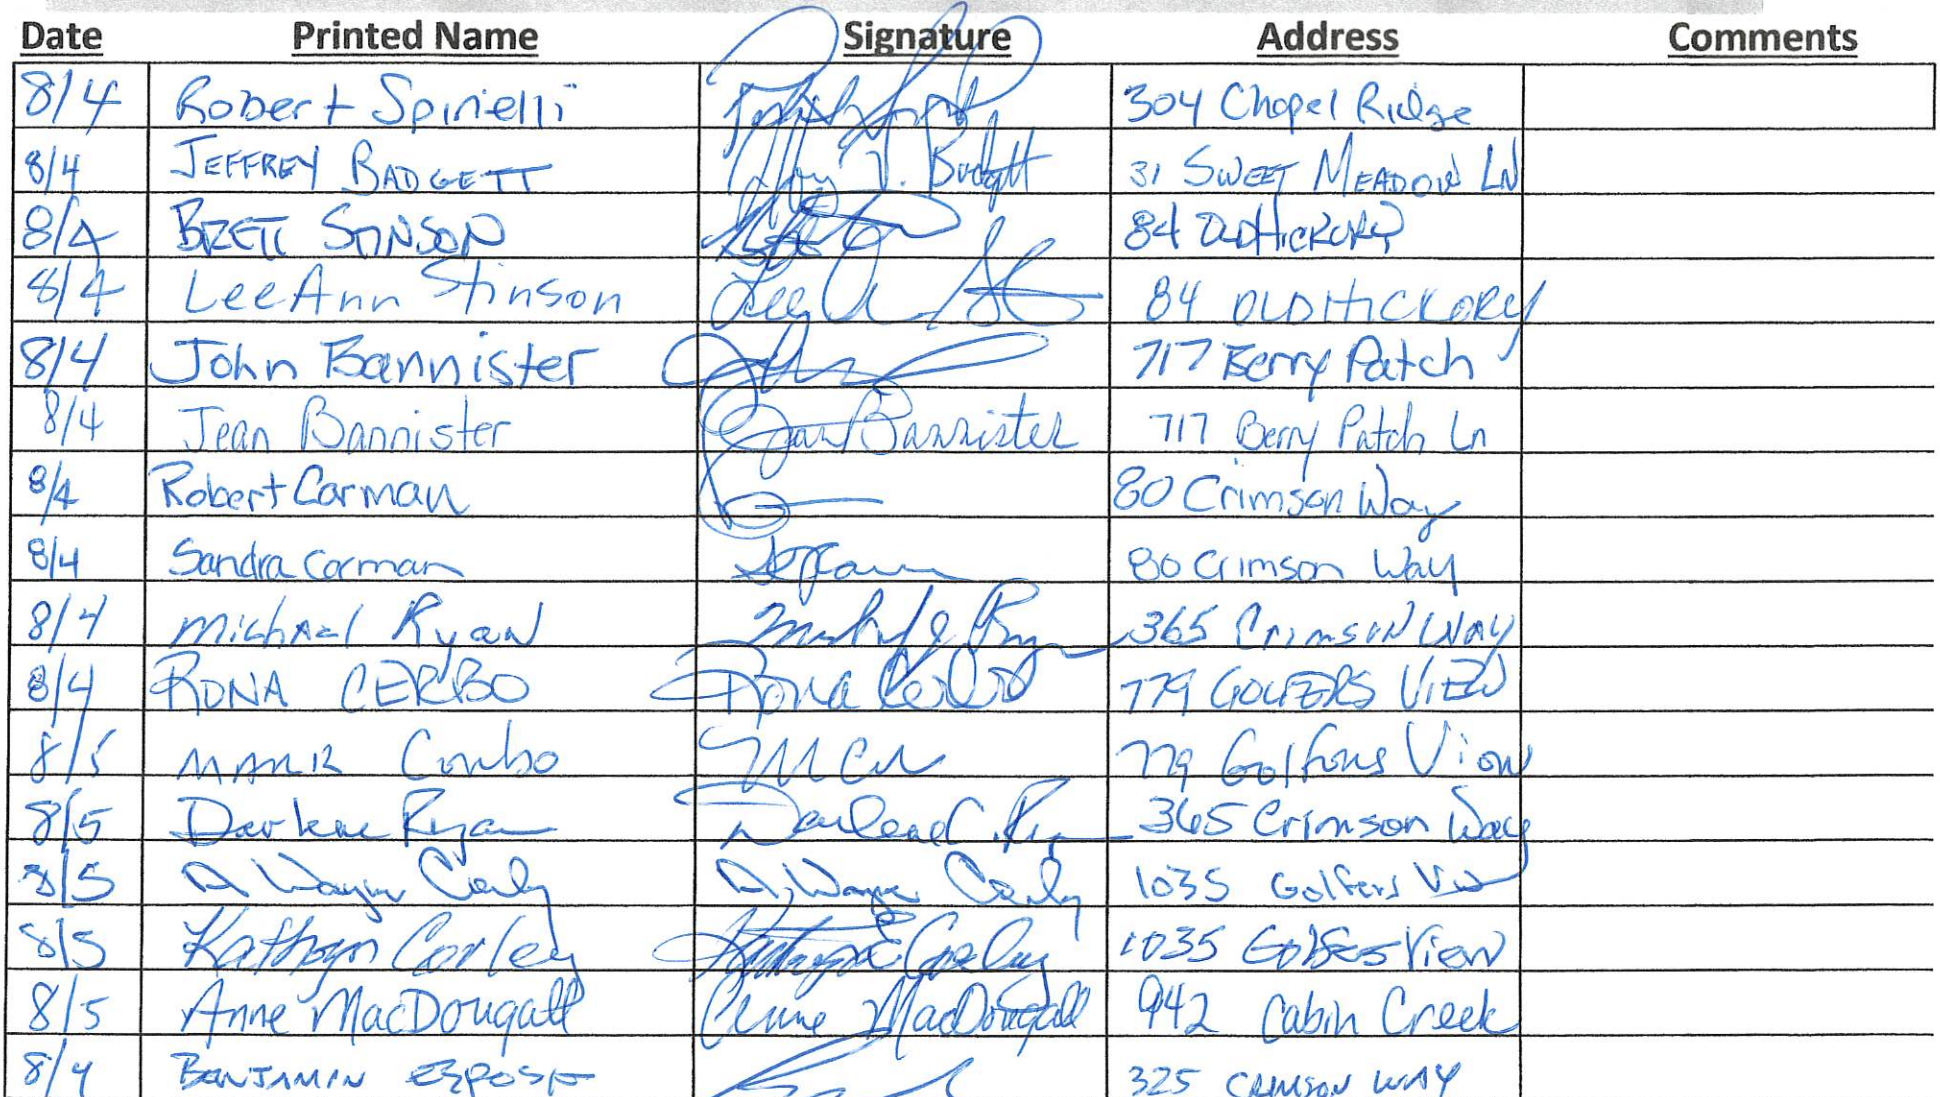 Date Printed Name Signature Address Comments
8/4 Robert Spirielli 304 Chapel Ridge
8/4 JEFFREY BADGETT Jeffrey V. Badgett 31 SWEET MEADOW LN
8/4 BRETT STINSON 84 OLD HICKORY
8/4 LeeAnn Stinson 84 OLD HICKORY
8/4 John Bannister 717 Berry Patch
8/4 Jean Bannister Jean Bannister 717 Berry Patch Ln
8/4 Robert Carman 80 Crimson Way
8/4 Sandra Carman 80 Crimson Way
8/4 Michael Ryan 365 Crimson Way
8/4 RONA CERBO Rona Cerbo 779 GOLFERS VIEW
8/5 MARK Cerbo 779 Golfers View
8/5 Darlene Ryan Darlene C. Ryan 365 Crimson Way
8/5 A Wayne Corley A. Wayne Corley 1035 Golfers View
8/5 Kathryn Corley Kathryn E Corley 1035 Golfers View
8/5 Anne MacDougall Anne MacDougall 942 Cabin Creek
8/4 BENJAMIN 325 CRIMSON WAY